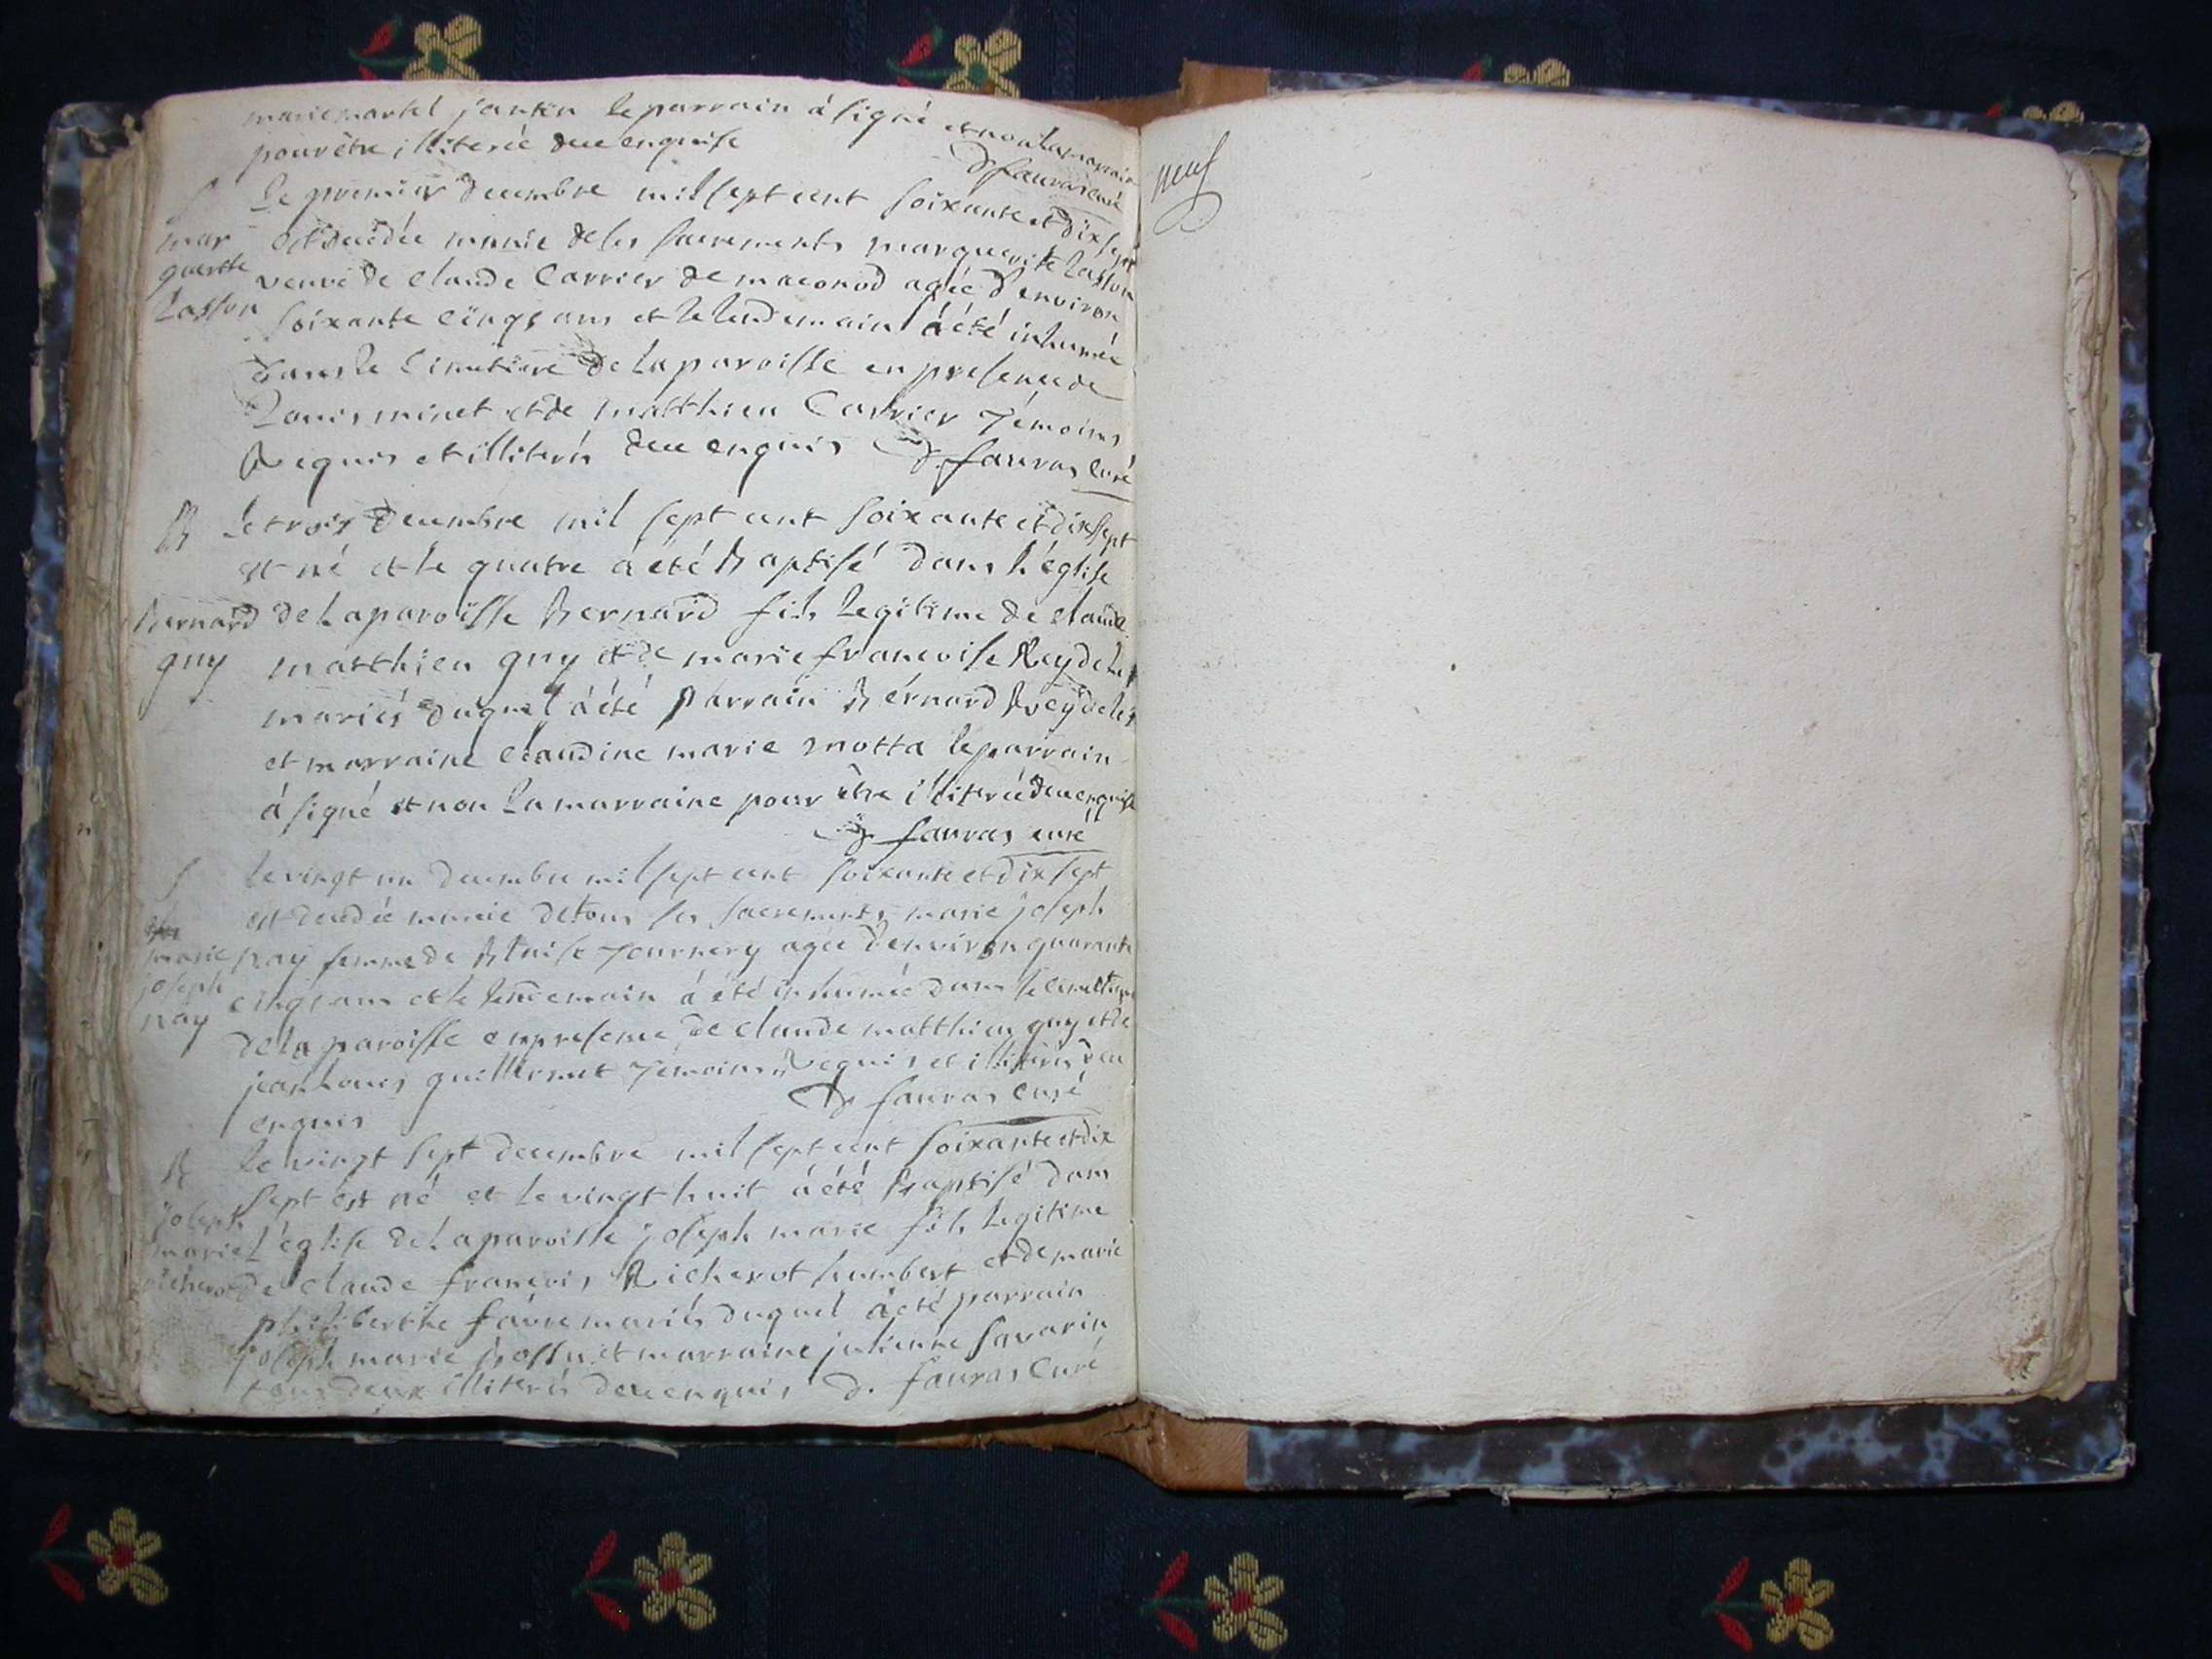 marie martel jantin le parrain á signé et non la marraine
pour être illiterée de ce enquise
D fauras curé
S Le premier decembre mil sept cent soixante et dix sept
mar est decedée munie de ses sacrements marguerite Lasson
gueritte veuve de claude Carrier de maconod agée d'environ
Lasson soixante cinqs ans et le lendemain á été inhumée
dans le Cimetiere de la paroisse en presence de
Louis minet et de matthieu Carrier Témoins
Requis et illiterés de ce enquis D. fauras Curé
B Le trois Decembre mil sept cent soixante et dix sept
est né et le quatre á été Baptisé dans L'église
Bernard de La paroisse Bernard fils legitime de claude
guy matthieu guy et de marie francoise Reydelet
mariés duquel á été parrain Bernard Reydelet
et marraine claudine marie motta le parrain
á signé et non La marraine pour être illiterée de ce enquise
D fauras curé
S le vingt un decembre mil sept cent soixante et dix sept
est decedée munie de tous ses sacrements marie joseph
marie nay femme de Blaise Tournery agée d'environ quarante
joseph cinqs ans et le lendemain á été inhumée dans le Cimetiere
nay de la paroisse en presence de claude matthieu guy et de
jean Louis guillermet Témoins Requis et illiterés de ce
enquis D fauras Curé
B Le vingt sept decembre mil sept cent soixante et dix
sept est né et le vingt huit á été Baptisé dans
joseph
marie L'église de La paroisse joseph marie fils legitime
richerot de claude francois Richerot humbert et de marie
philiberthe favre mariés duquel á été parrain
joseph marie Bossu et marraine julienne Savarin
tous deux illiterés de ce enquis D. fauras Curé
neuf